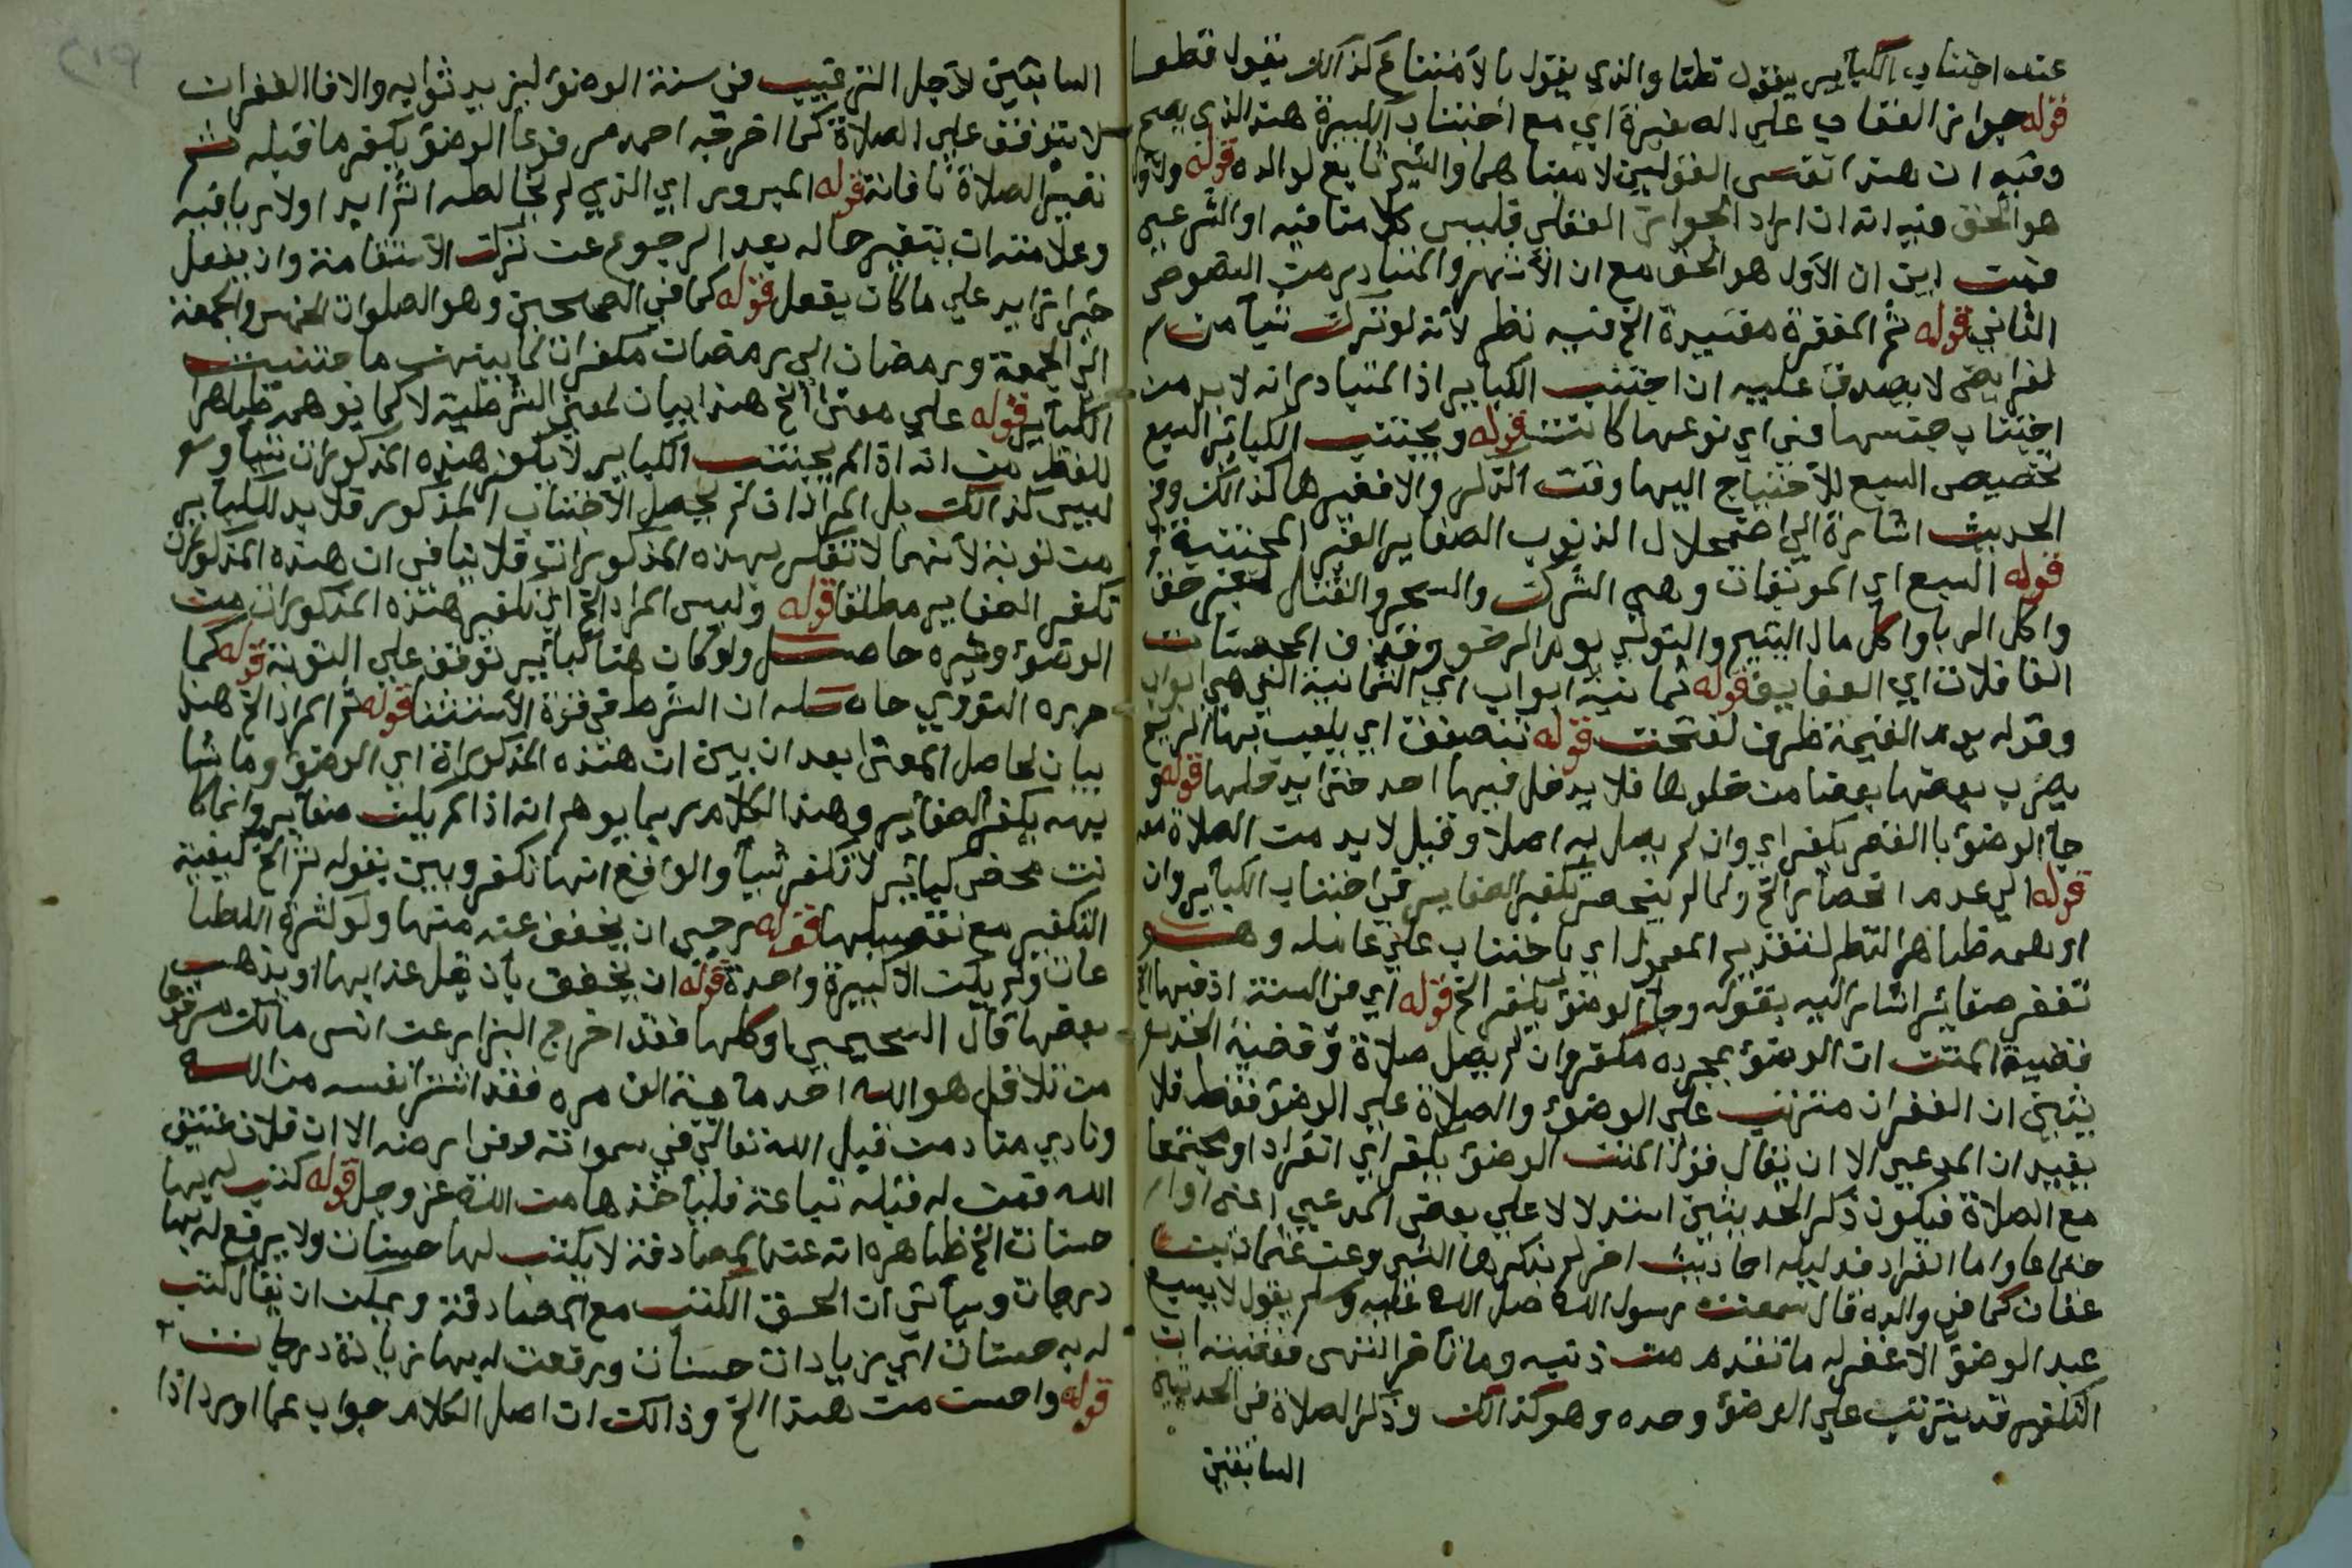 عنه اجتناب الكبائر يقول قطعا والذي يقول بالامتناع كذالك يقول قطعا
قوله جواز العقاب على الصغيرة اي مع اجتناب الكبيرة هذا الذي يصح
وفيه ان هذا تفسير القولين لا مبناهما والشيخ تابع لوالده قوله
هو الحق فيه انه ان اراد الجواز العقلي فليس كلامنا فيه او الشرعي
فمن اين ان الاول هو الحق مع ان الاشهر والمتبادر من النصوص
الثاني قوله ثم المغفرة مقيدة الخ فيه نظر لانه لو ترك شيأ من
لفرايض لا يصدق عليه ان اجتنب الكبايراذ المتبادر انه لا بد من
اجتناب جنسها في اي نوعها كانت قوله ويجتنب الكبائر السبع
تخصيص السبع للاحتياج اليها وقت الذكر والا فغيرها كذالك وفي
الحديث اشارة الى اضمحلال الذنوب الصغاير الغير المجتنبة
قوله السبع اي الموبقات وهي الشرك والسحر والقتال لغير حق
واكل الربا واكل مال اليتيم والتولي يوم الزحف وقذف المحصنات
الغافلات اي العفايف قوله ثمانية ابواب اي الثمانية التي هي ابواب
وقوله يوم القيمة ظرف لفتحت قوله تنصفق اي يلعب بها الريح
يضرب بعضها بعضا من خلوها فلا يدخل فيها احد حتى يدخلها قوله و
جاء الوضوء بالغفر يكفر اي وان لم يصل به اصلا وقيل لا بد من الصلاة معه
قوله الى عدم انحصار الخ ولما لم ينحصر تكفير الصغاير في اجتناب الكبائر وان
اوهمه ظاهر النظم لتقديم المعمول اي باجتناب على عامله وهو
تغفر صغائر اشار اليه بقوله وجاء الوضوء يكفر الخ قوله اي من السنة اذ فيها الخ
قضية المتن ان الوضوء بمجرده مكفر وان لم يصل صلاة وقضية الحديث
يثبتن ان الغفران مترتب على الوضوء والصلاة على الوضوء فقط فلا
يفيدان المدعى الا ان يقال قول المتن الوضوء يكفر اي انفرادا او مجتمعا
مع الصلاة فيكون ذكر الحديثين استدلالا على بعض المدعى اعني
جتماعا واما انفراد فدليله احاديث اخر لم يذكرها الشيخ وعن عثمان بن
عفان كما في والده قال سمعت رسول الله صلى الله عليه وسلم يقول لا يسبغ
عبد الوضوء الا غفر له ما تقدم من ذنبه وما تاخر انتهى فمقتضاه ان
التكفير قد يترتب على الوضوء وحده وهو كذالك وذكر الصلاة في الحديثين
السابقين
السابقين لاجل الترغيب في سنة الوضوء ليزيد ثوابه والا فالغفران
لا يتوقف على الصلاة كما اخرجه احمد مرفوعا الوضوء يكفر ما قبله ثم
تصير الصلاة نافلة قوله المبرور اي الذي لم يخالطه اثم ابدا ولا رياء فيه
وعلامته ان يتغير حاله بعد الرجوع عن ترك الاستقامة وان يفعل
خيرا زايد على ما كان يفعل قوله كما في الصحيحين وهو الصلوات الخمس والجمعة
الى الجمعة ورمضان الى رمضان مكفرات لما بينهن ما جتنبت
الكبائر قوله على معنى الخ هذا بيان لمعنى الشرطية لا كما يوهمه ظاهر
اللفظ من انه اذا لم يجتنب الكباير لا يكفر هذه المذكورات شيأ و
ليس كذالك بل المراد ان لم يحصل الاجتناب المذكور فلا بد للكباير
من توبة لانها لا تكفر بهذه المذكورات فلا ينافي ان هذه المذكورات
تكفر الصغاير مطلقا قوله وليس المراد الخ اي تكفير هذه المذكورات من
الوضوء وغيره حاصل ولو كان هنا كبائر توقف على التوبة قوله كما
حرره النووي حاصله ان الشرط في قوة الاستثنا قوله ثم المراد الخ هذا
بيان لحاصل المعنى بعد ان بين ان هذه المذكوراة اي الوضوء وما شا
بهه يكفر الصغاير وهذا الكلام ربما يوهم انه اذا لم يكن صغاير وانما كا
نت محض كبائر لا تكفر شيأ والواقع انها تكفر وبين بقوله ثم الخ كيفية
التكفير مع تفصيلها قوله رجي ان يخفف عنه منها ولو لثمرة اللطا
عات ولم يكن الا كبيرة واحدة قوله ان يخفف بأن يقل عذابها او يذهب
بعضها قال السحيمي او كلها فقد اخرج البزار عن انس مالك مرفوعا
من تلا قل هو الله احد ماية الف مره فقد اشترا نفسه من الله
ونادي مناد من قبل الله تعالى في سمواته وفي ارضه الا ان فلان عتيق
الله فمن له قبله تباعة فليأخذها من الله عز وجل قوله كتب له بها
حسنات الخ ظاهره انه عند المصادفة لا يكتب لها حسنات ولا يرفع له بها
درجات وسيأتي ان الحق الكتب مع المصادفة ويمكن ان يقال كتب
له به حسنات اي زيادات حسنات ورفعت له بها زيادة درجات
قوله واحسن من هذا الخ وذالك ان اصل الكلام جواب عما اورد اذا